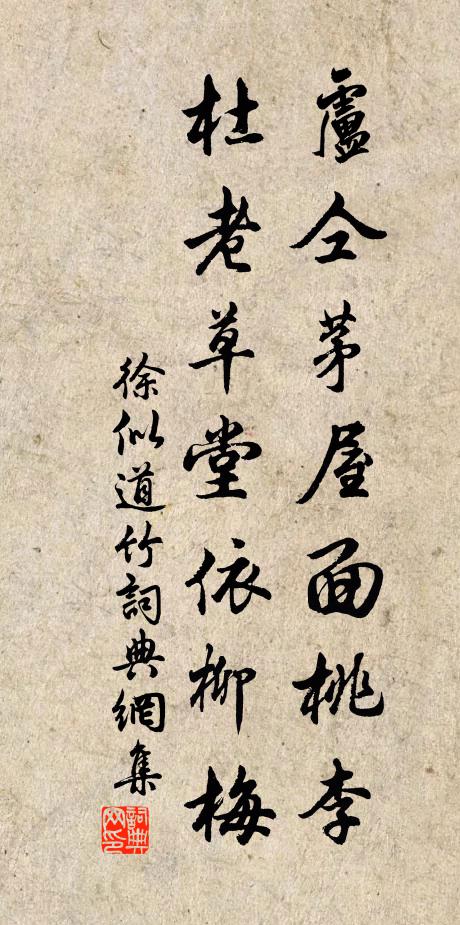 盧仝茅屋面桃李
杜老草堂依柳梅
徐似道竹詞典網集
詞典网印